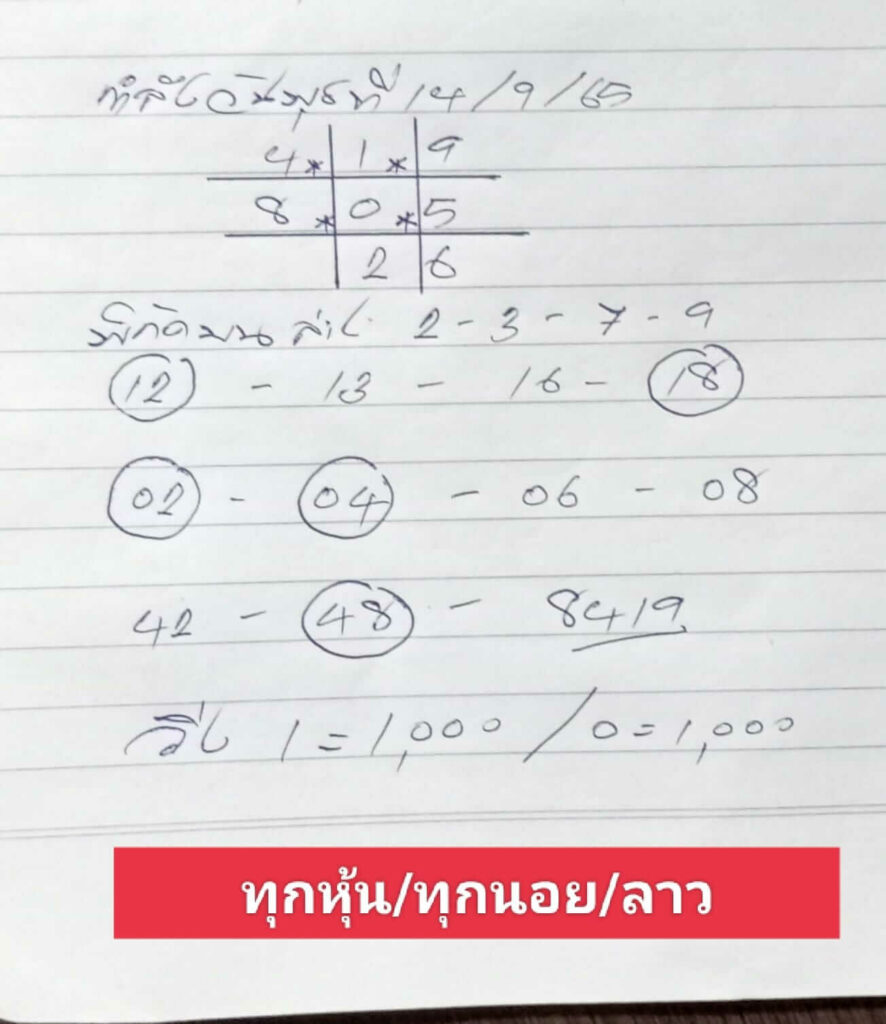 กำลังวันพุธที่ 14/9/65
4 * 1 * 9
8 * 0 * 5
2 6
พิกัดบน ล่าง 2-3-7-9
12 - 13 - 16 - 18
02 - 04 - 06 - 08
42 - 48 - 8419
วิ่ง 1=1,000 / 0=1,000
ทุกหุ้น/ทุกนอย/ลาว